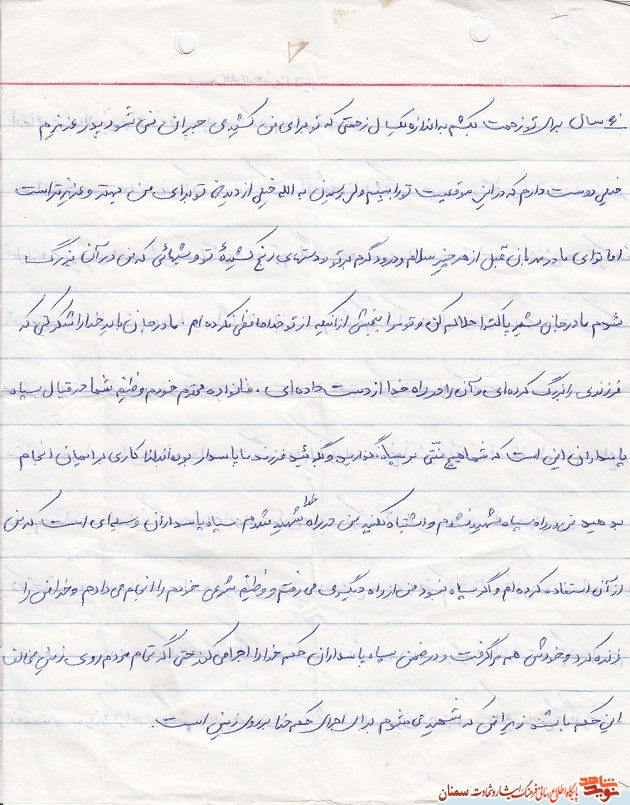 ۶۰ سال برای تو زحمت بکشم به اندازه یکسال زحمتی که تو برای من کشیدی جبران نمی شود پدر عزیزم
خیلی دوست دارم که در این موقعیت تو را ببینم ولی رسیدن به الله خیلی از دیدن تو برای من بهتر و عزیزتر است
اما توای مادر مهربان قبل از هر چیز سلام و درود گرم بر تو و دستهای رنج کشیدهٔ تو و شبهائی که من در آن بزرگ
شدم مادر جان شیر پاکت را حلالم کن و تو مرا ببخش از اینکه از تو خداحافظی نکرده ام. مادر جان باید خدا را شکر کنی که
فرزندی را بزرگ کرده ای و آن را در راه خدا از دست داده ای. خانواده محترم خودم وظیفه شما در قبال سپاه
پاسداران این است که شما هیچ منّتی بر سپاه نگذارید و نگوئید فرزند ما پاسدار بوده کاری برایمان انجام
بدهید من در راه سپاه شهید نشدم و اشتباه نکنید من در راه خدا شهید شدم سپاه پاسداران وسیله ای است که من
از آن استفاده کرده ام و اگر سپاه نبود من از راه دیگری می رفتم و وظیفه شرعی خودم را انجام می دادم و خدا من را
زنده کرد و خودش هم مرا گرفت و در ضمن سپاه پاسداران حکم خدا را اجرا می کند حتی اگر تمام مردم روی زمین مخالف
این حکم باشند زیرا من که شهید می شوم برای اجرای حکم خدا بر روی زمین است.
نوید شاهد
پایگاه اطلاع رسانی فرهنگ ایثار و شهادت سمنان